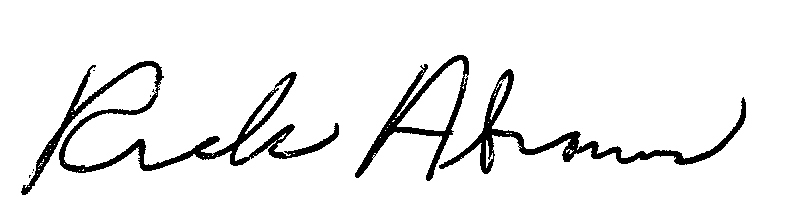 Rick Abrams